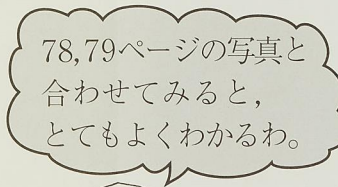 78,79ページの写真と
合わせてみると，
とてもよくわかるわ。